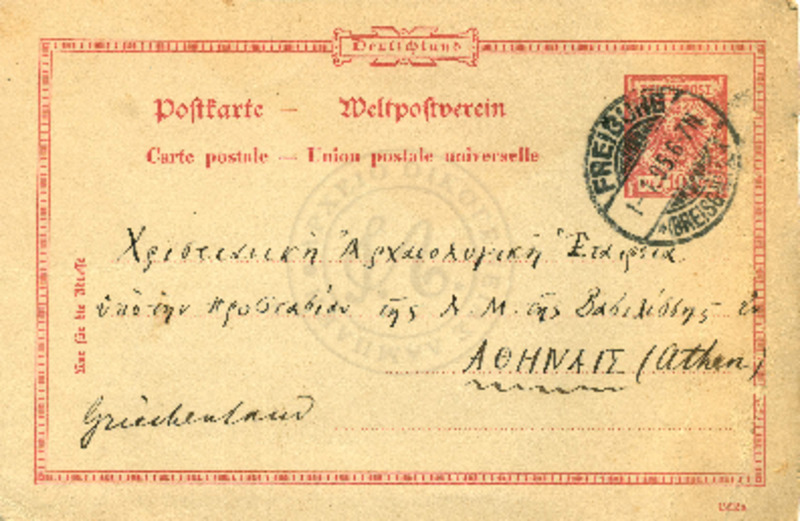 Deutschland
REICHSPOST
Postkarte — Weltpostverein
Carte postale — Union postale universelle
10
FREIBURG
(BREISGAU)
Nur für die Adresse
Χριστιανικῇ Ἀρχαιολογικῇ Ἑταιρείᾳ
ὑπὸ τὴν προστασίαν τῆς Α. Μ. τῆς Βασιλίσσης ἐν
ΑΘΗΝΑΙΣ (Athen)
Griechenland